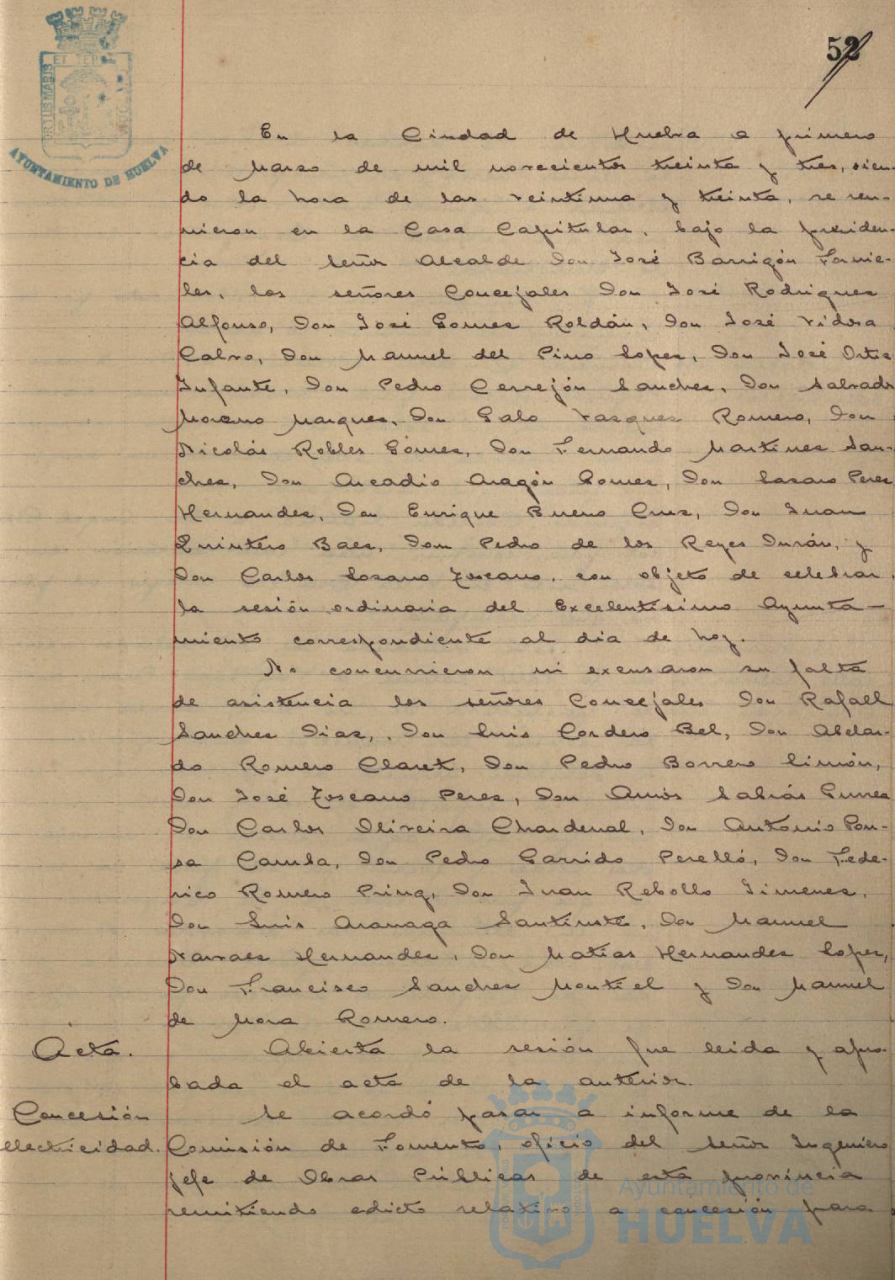 52
PORTUS MARIS ET TER
AYUNTAMIENTO DE HUELVA
En la Ciudad de Huelva a primero
de Marzo de mil novecientos treinta y tres, sien-
do la hora de las veintiuna y treinta, se reu-
nieron en la Casa Capitular, bajo la presiden-
cia del Señor Alcalde Don José Barrigón Fornie-
les, los señores Concejales Don José Rodriguez
Alfonso, Don José Gomez Roldán, Don José Vidosa
Calvo, Don Manuel del Pino Lopez, Don José Ortiz
Infante, Don Pedro Cerrejón Sanchez, Don Salvador
Moreno Marquez, Don Galo Vazquez Romero, Don
Nicolás Robles Gómez, Don Fernando Martinez San-
chez, Don Arcadio Aragón Gomez, Don Lazaro Perez
Hernandez, Don Enrique Bueno Cruz, Don Juan
Quintero Baez, Don Pedro de los Reyes Durán, y
Don Carlos Lozano Toscano, con objeto de celebrar
la sesión ordinaria del Excelentísimo Ayunta-
miento correspondiente al dia de hoy.
No concurrieron ni excusaron su falta
de asistencia los señores Concejales Don Rafael
Sanchez Diaz, Don Luis Cordero Bel, Don Abelar-
do Romero Claret, Don Pedro Borrero Limón,
Don José Toscano Perez, Don Amós Sabrás Gurrea
Don Carlos Oliveira Chardenal, Don Antonio Pon-
sa Camba, Don Pedro Garrido Perelló, Don Fede-
rico Romero Prinz, Don Juan Rebollo Jimenez,
Don Luis Aranaga Santiuste, Don Manuel
Narvaez Hernandez, Don Matías Hernandez Lopez,
Don Francisco Sanchez Montiel y Don Manuel
de Mora Romero.
Acta.
Abierta la sesión fue leida y apro-
bada el acta de la anterior.
Concesión
electricidad.
Se acordó pasar a informe de la
Comisión de Fomento, oficio del Señor Ingeniero
jefe de Obras Públicas de esta provincia
remitiendo edicto relativo a concesión para
Ayuntamiento de
HUELVA